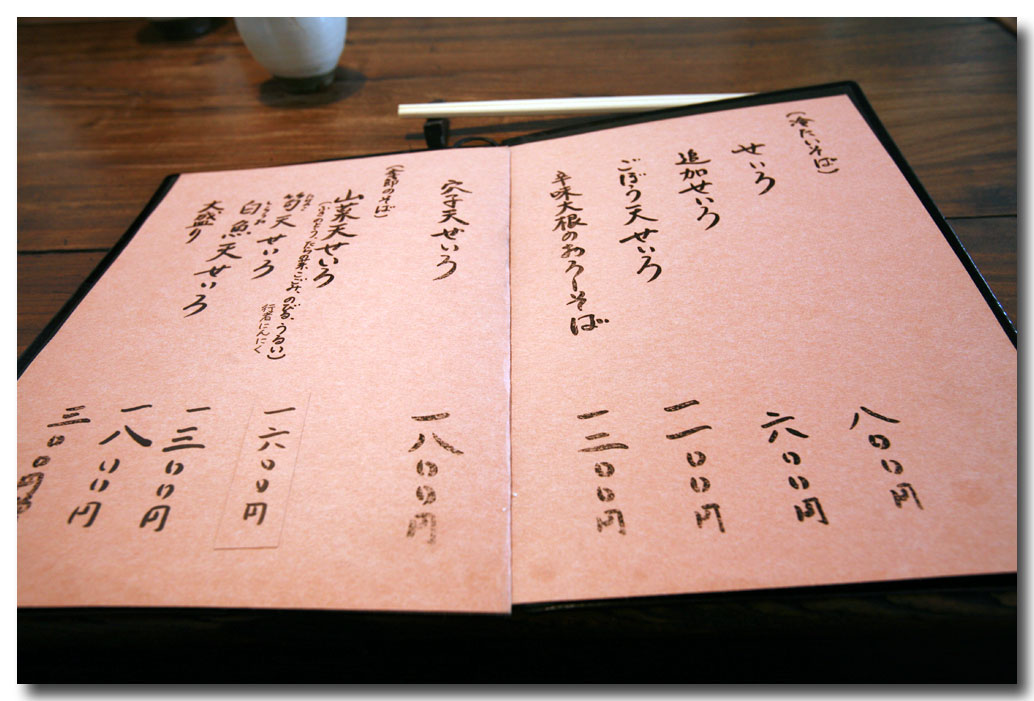 (冷たいそば)
せいろ 八〇〇円
追加せいろ 六〇〇円
ごぼう天せいろ 一一〇〇円
辛味大根のおろしそば 一二〇〇円
穴子天せいろ 一八〇〇円
(季節のそば)
山菜天せいろ 一六〇〇円
(ふきのとう、たらの芽、こごみ、のびる、うるい)
行者にんにく
筍天せいろ 一三〇〇円
白魚天せいろ 一八〇〇円
大盛り 三〇〇円